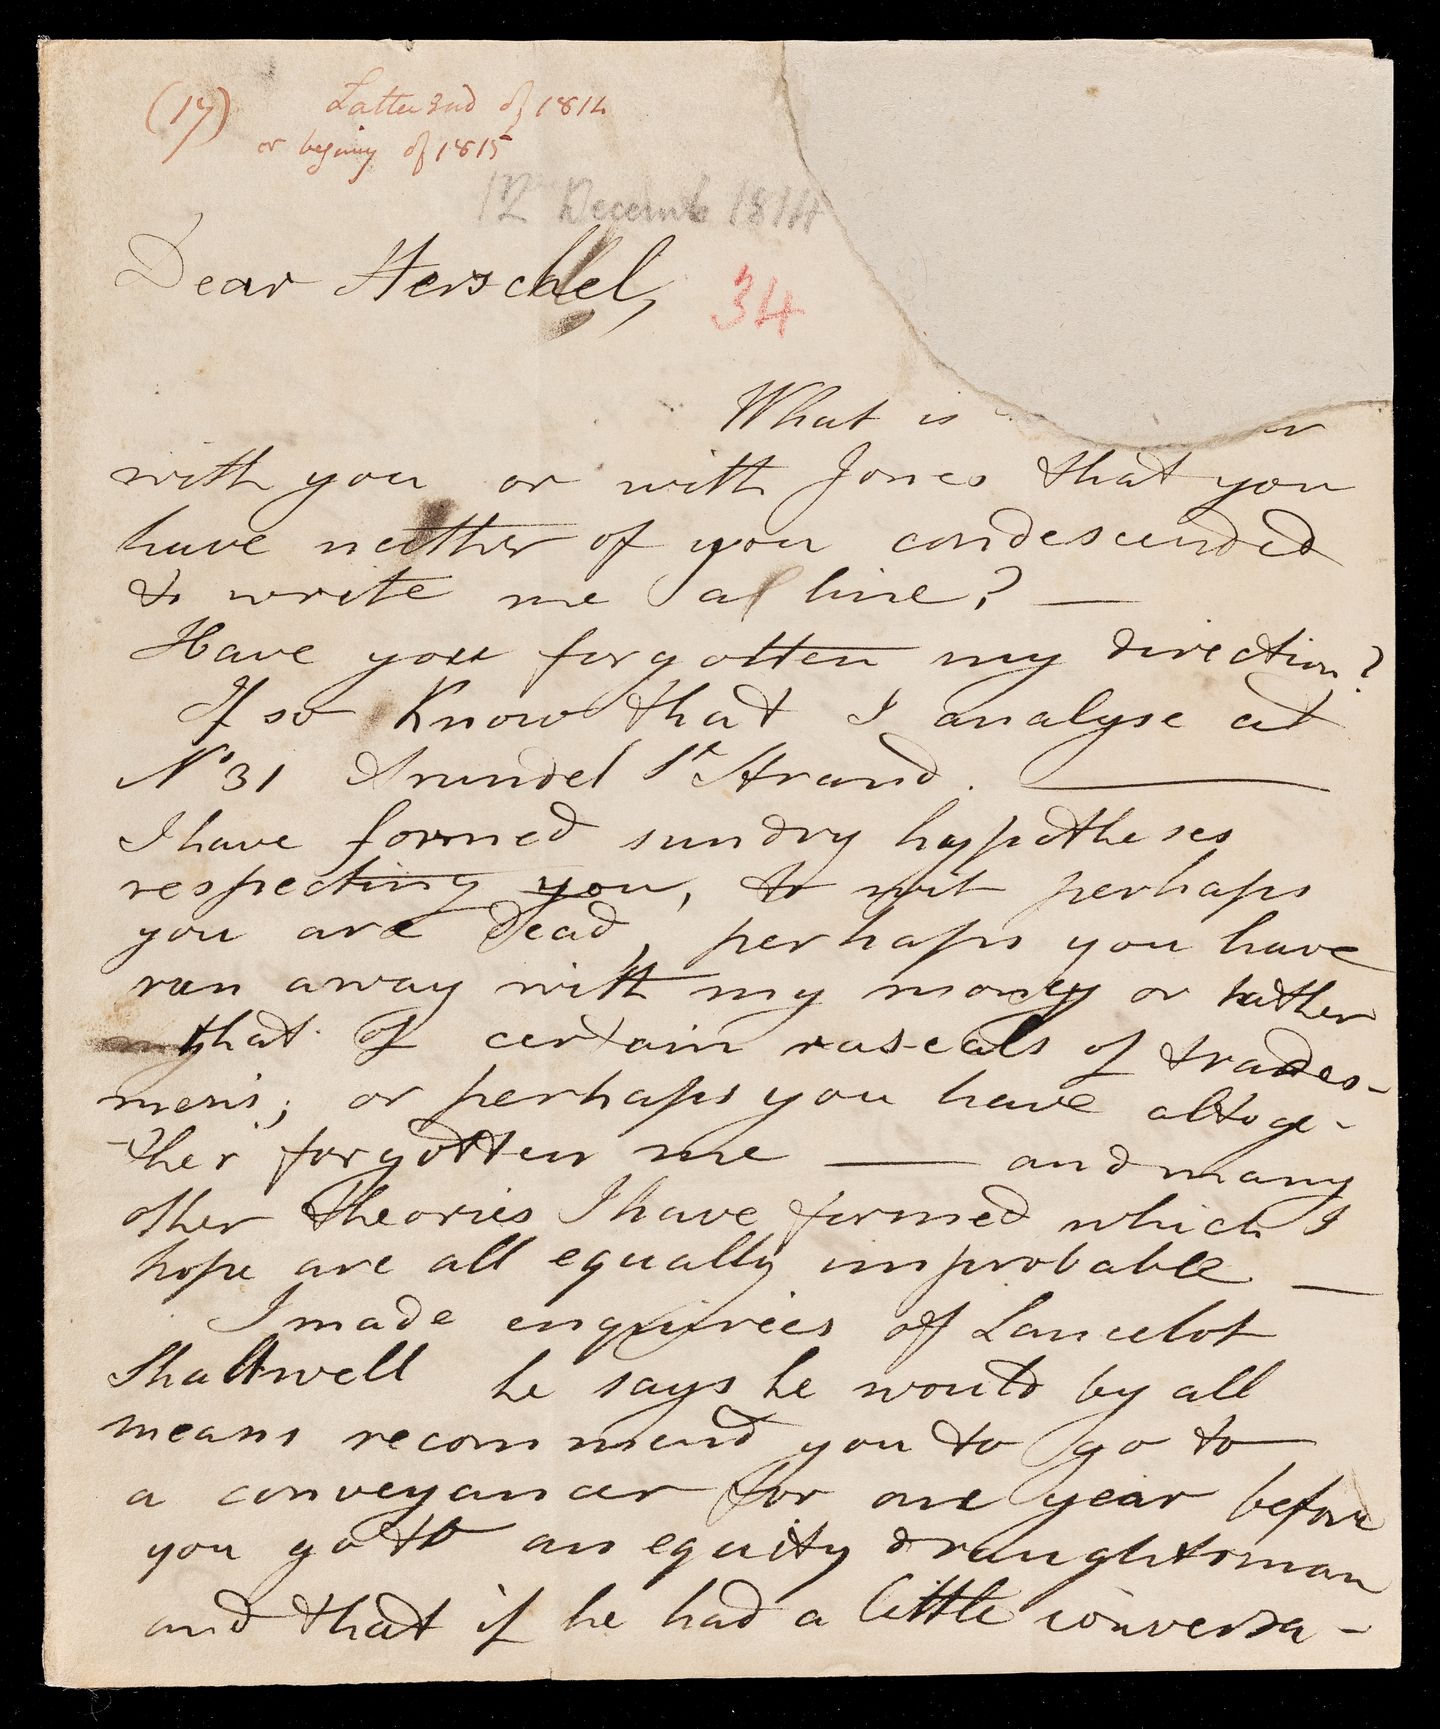 (17) Latter End of 1814
or begining of 1815
12 Decemb 1814
Dear Herschel,
34
What is
with you or with Jones that you
have neither of you condescended
to write me a line? —
Have you forgotten my direction?
If so Know that I analyse at
No 31 Arundel St Strand. —
I have formed sundry hypotheses
respecting you, to wit perhaps
you are dead, perhaps you have
run away with my money or rather
that of certain rascals of trades-
mens; or perhaps you have altoge-
-ther forgotten me — and many
other theories I have formed which I
hope are all equally improbable —
I made enquiries of Lancelot
Shadwell he says he would by all
means recommend you to go to
a conveyancer for one year before
you go to an equity draughtsman
and that if he had a little conversa-